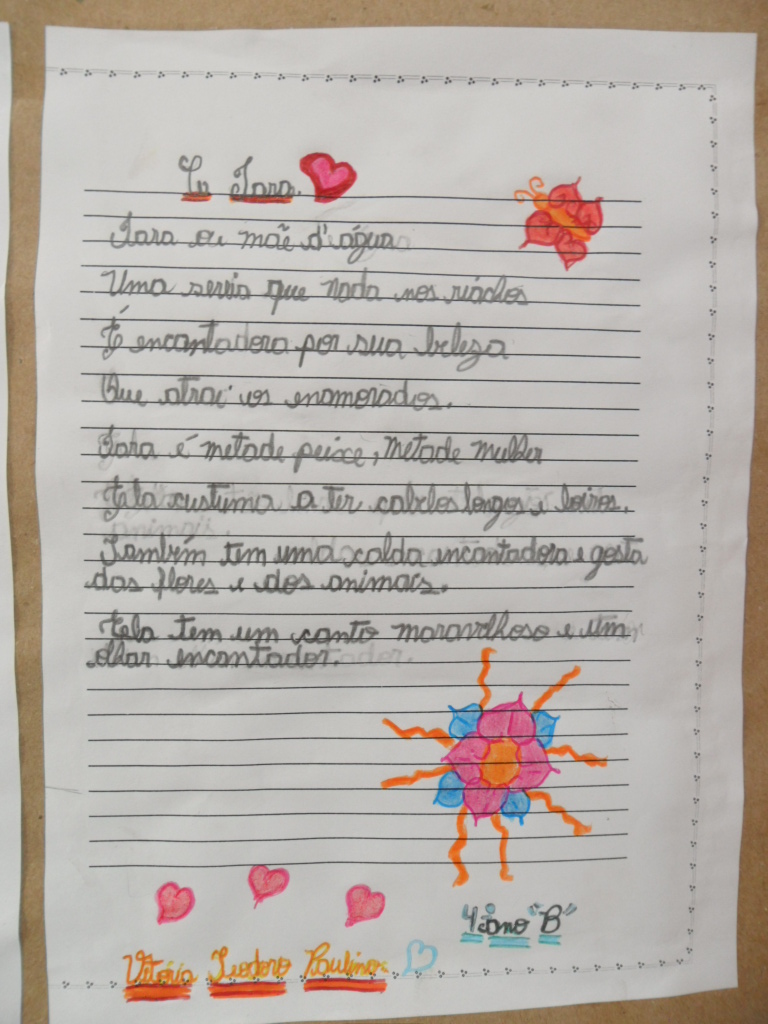 Iara.
Iara ou maẽ d'água
Uma sereia que nada nos riáchos
É encantadora por sua beleza
Que atrai os enamorados.
Iara é metade peixe, Metade Mulher
Ela custuma a ter cabelos longos e loiros.
Também tem uma calda encantadora e gosta
das flores e dos animais.
Ela tem um canto maravilhoso e um
olhar encantador.
4º ano "B"
Vitória Teodoro Paulino